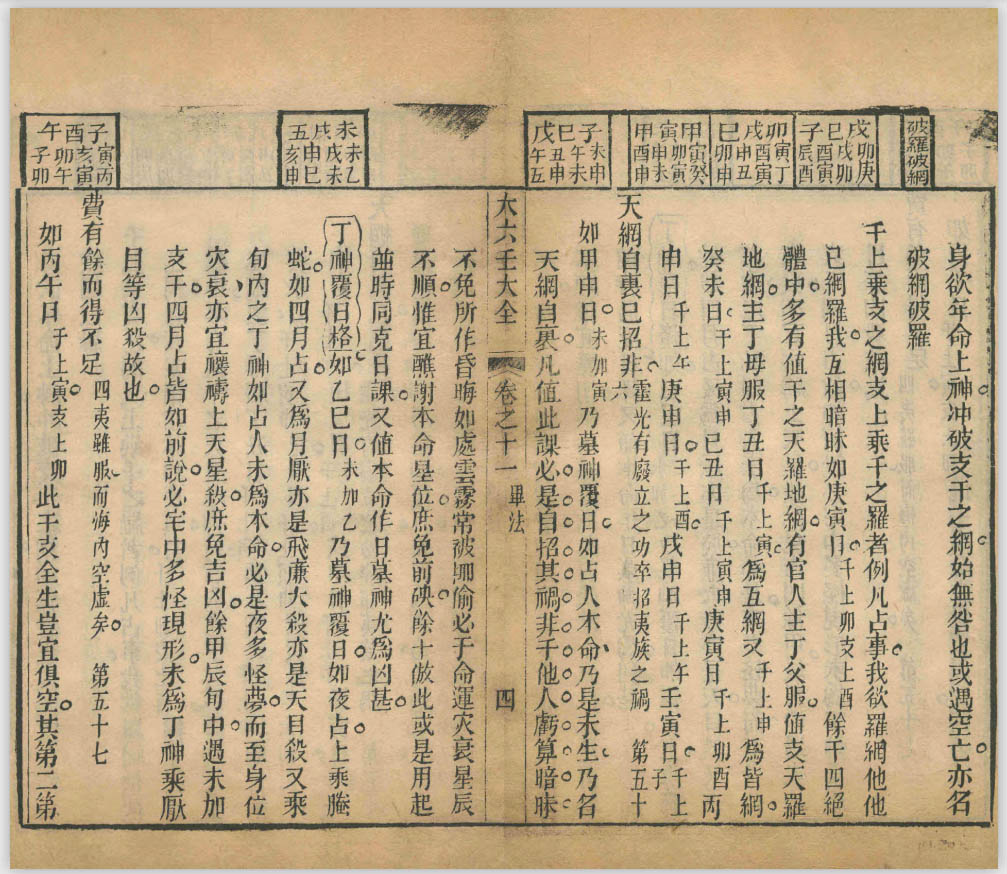 破羅破網
戊卯庚
巳戌卯
子酉寅
辰酉
卯寅丁
戌酉寅
巳申丑
卯申
甲寅癸
寅卯寅
甲申未
酉申
子未申
巳丑午
戊申未
午五
未未乙
戌戌未
五申巳
亥申
子寅丙
酉亥寅
午卯午
子卯
身欲年命上神冲破支干之網始無咎也或遇空亡亦名
破網破羅
千上乘支之網支上乘千之羅者例凡占事我欲羅網他他
已網羅我互相暗昧如庚寅日千上卯支上酉餘干四絕
體中多有值干之天羅地網有官人主丁父服值支天羅
地網主丁母服丁丑日千上寅申為互網又千上申為皆網
癸未日千上寅申己丑日千上寅申庚寅日千上卯酉丙
申日千上午庚申日千上酉戌申日千上午壬寅日千上子
天網自裹已招非六霍光有廢立之功卒招夷族之禍 第五十
如甲申日未加寅乃墓神覆日如占人本命乃是未生乃名
天網自裹凡值此課必是自招其禍非千他人虧算暗昧
大六壬大全 卷之十一 畢法 四
不免所作昏晦如處雲霧常被堋偷必于命運灾衰星辰
不順惟宜醮謝本命星位庶免前殃餘十倣此或是用起
並時同克日課又值本命作日墓神尤為凶甚
丁神覆日格如乙巳日未加乙乃墓神覆日如夜占上乘螣
蛇如四月占又為月厭亦是飛廉大殺亦是天目殺又乘
旬內之丁神如占人未為本命必是夜多怪夢而至身位
灾衰亦宜禳禱上天星殺庶免吉凶餘甲辰旬中遇未加
支干四月占皆如前說必宅中多怪現形未為丁神乘厭
目等凶殺故也
費有餘而得不足四夷雖服而海內空虛矣 第五十七
如丙午日于上寅支上卯此干支全生豈宜俱空其第二第